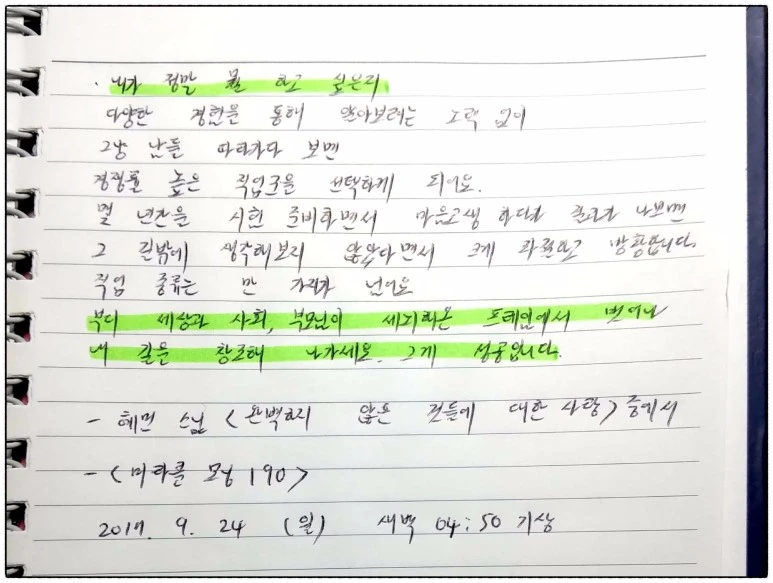 · 내가 정말 뭘 하고 싶은지
다양한 경험을 통해 알아보려는 노력 없이
그냥 남들 따라가다 보면
경쟁률 높은 직업군을 선택하게 되어요.
몇 년간을 시험 준비하면서 마음고생 하다가 결과가 나쁘면
그 길밖에 생각해보지 않았다면서 크게 좌절하고 방황합니다.
직업 종류는 만 가지가 넘어요
부디 세상과 사회, 부모님이 세뇌해온 프레임에서 벗어나
내 길을 창조해 나가세요. 그게 성공입니다.
- 혜민 스님 <완벽하지 않은 것들에 대한 사랑> 중에서
- <미라클 모닝 190>
2017. 9. 24 (일) 새벽 04:50 기상